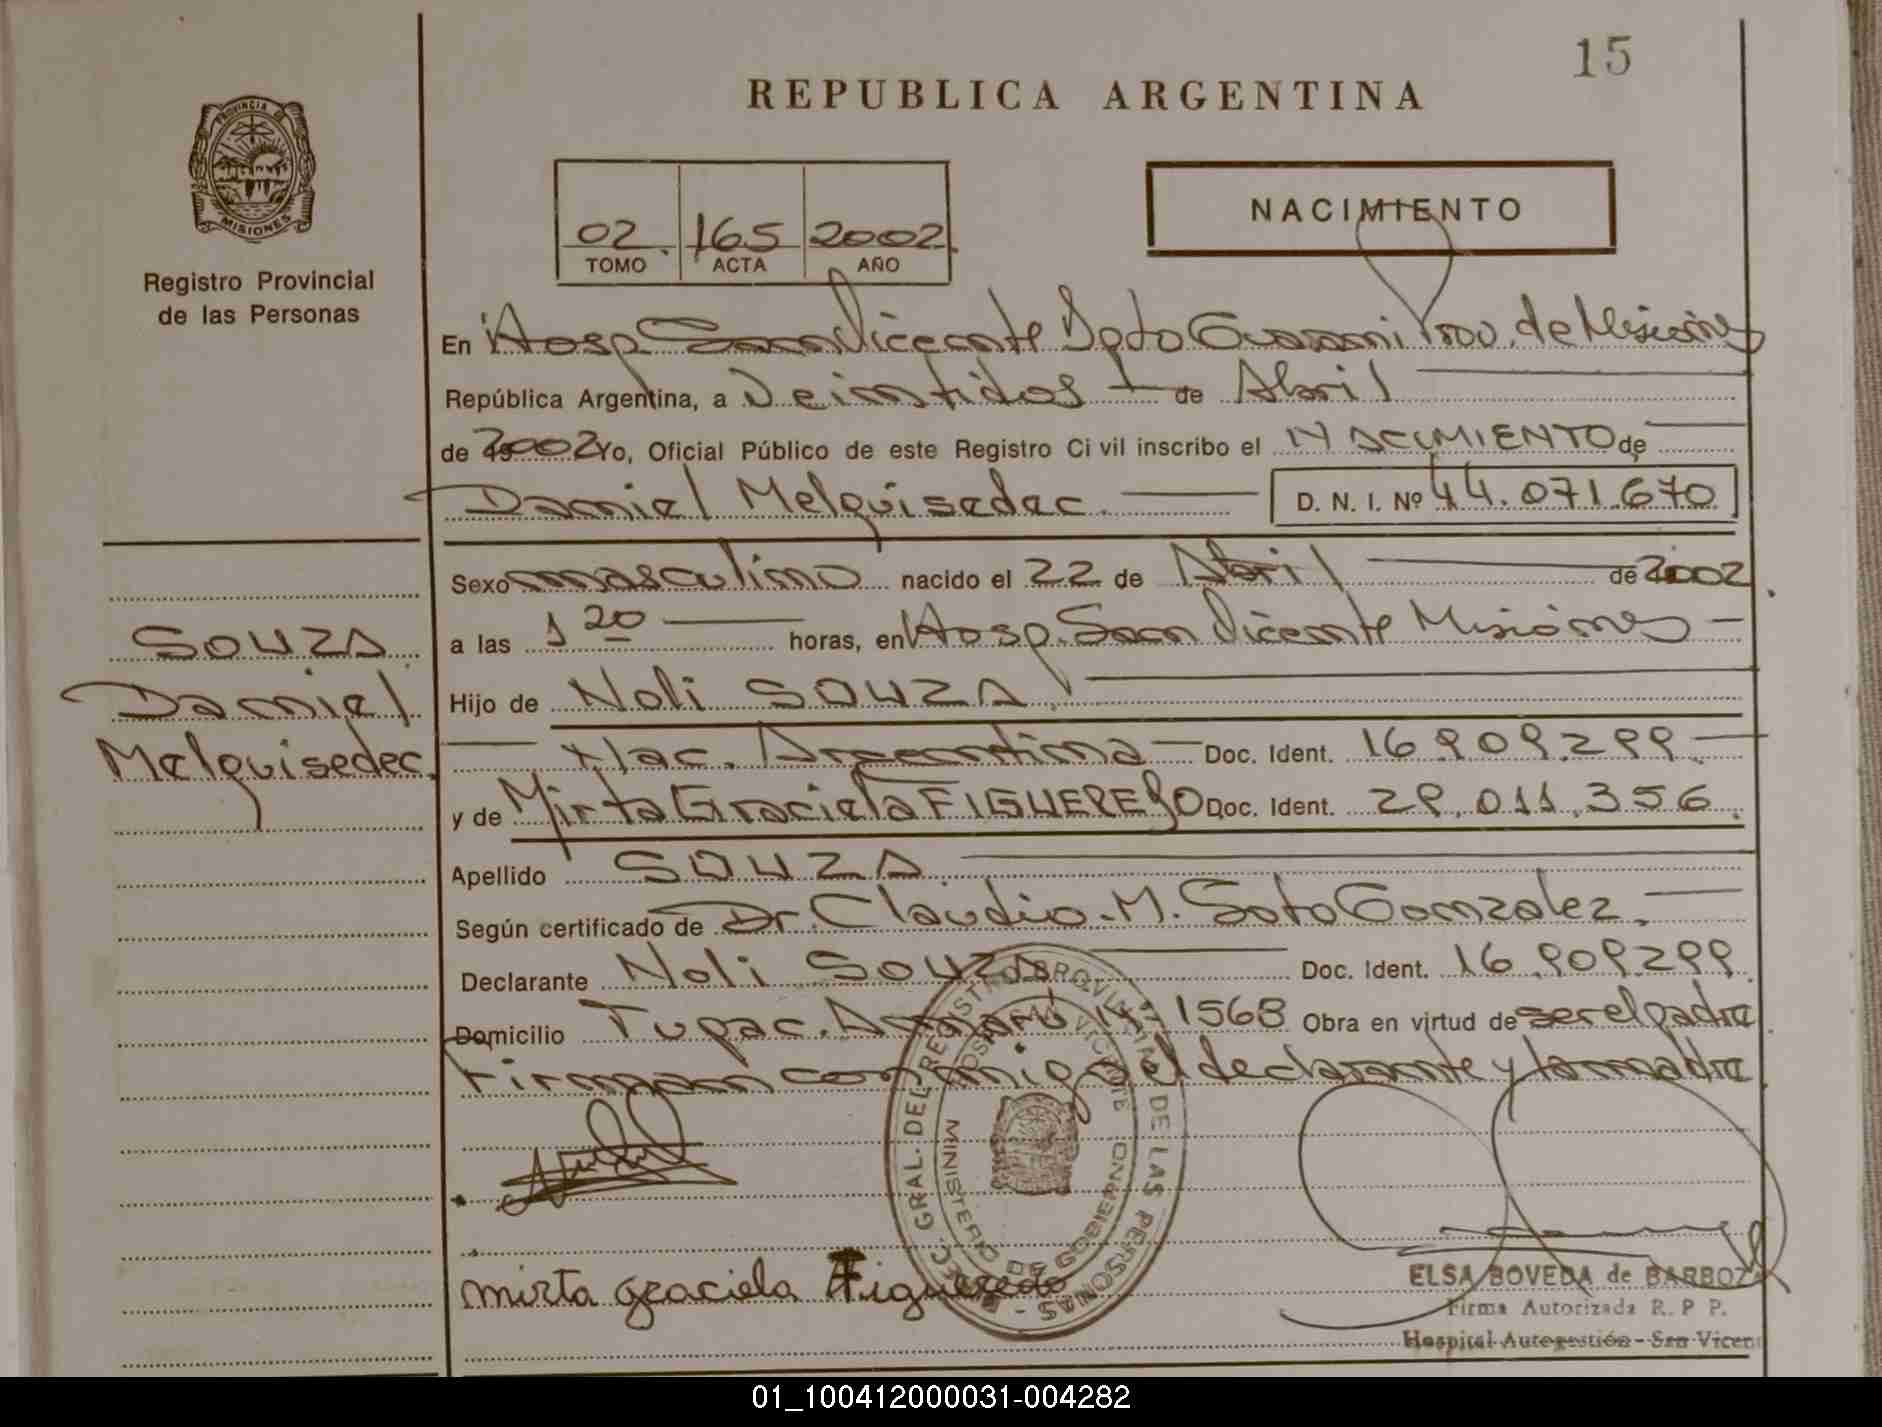 15
REPUBLICA ARGENTINA
PROVINCIA DE MISIONES
Registro Provincial
de las Personas
02 165 2002
TOMO ACTA AÑO
NACIMIENTO
En Hosp San Vicente Dpto Guarani Prov. de Misiones
República Argentina, a Veintidos de Abril
de 2002 Yo, Oficial Público de este Registro Civil inscribo el NACIMIENTO de
Daniel Melquisedec D. N. I. Nº 44.071.670
Sexo masculino nacido el 22 de Abril de 2002
SOUZA
Daniel
Melquisedec.
a las 1 20 horas, en Hosp. San Vicente Misiones
Hijo de Noli SOUZA
Nac. Argentina Doc. Ident. 16.909.299
y de Mirta Graciela FIGUEREDO Doc. Ident. 29.011.356
Apellido SOUZA
Según certificado de Dr. Claudio. M. Soto Gonzalez.
Declarante Noli SOUZA Doc. Ident. 16.909.299
Domicilio Tupac. Amarú Nº 1568 Obra en virtud de ser el padre
Firman conmigo el declarante y la madre
DEC. GRAL. DEL REGISTRO PROVINCIAL DE LAS PERSONAS
HOSPITAL SAN VICENTE
MINISTERIO DE GOBIERNO
mirta graciela Figueredo
ELSA BOVEDA de BARBOZA
Firma Autorizada R. P P.
Hospital Autogestión - San Vicen
01_100412000031-004282